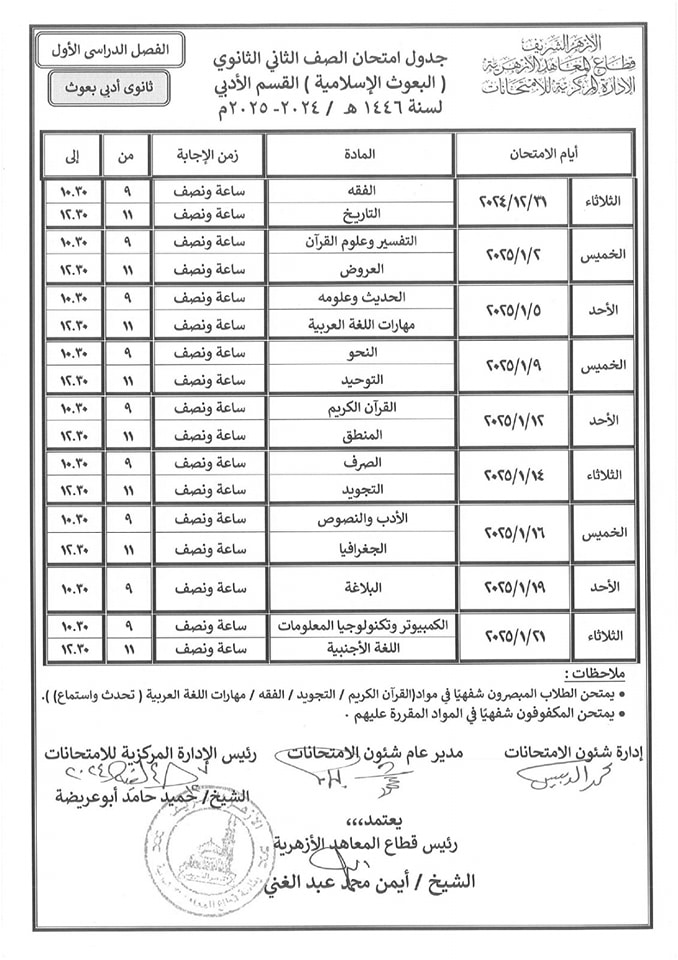 الأزهر الشريف
قطاع المعاهد الأزهرية
الإدارة المركزية للامتحانات
جدول امتحان الصف الثاني الثانوي
( البعوث الإسلامية ) القسم الأدبي
لسنة ١٤٤٦ هـ / ٢٠٢٤- ٢٠٢٥م
الفصل الدراسى الأول
ثانوى أدبي بعوث
أيام الامتحان المادة زمن الإجابة من إلى
الثلاثاء ٢٠٢٤/١٢/٣١ الفقه ساعة ونصف ٩ ١٠.٣٠
التاريخ ساعة ونصف ١١ ١٢.٣٠
الخميس ٢٠٢٥/١/٢ التفسير وعلوم القرآن ساعة ونصف ٩ ١٠.٣٠
العروض ساعة ونصف ١١ ١٢.٣٠
الأحد ٢٠٢٥/١/٥ الحديث وعلومه ساعة ونصف ٩ ١٠.٣٠
مهارات اللغة العربية ساعة ونصف ١١ ١٢.٣٠
الخميس ٢٠٢٥/١/٩ النحو ساعة ونصف ٩ ١٠.٣٠
التوحيد ساعة ونصف ١١ ١٢.٣٠
الأحد ٢٠٢٥/١/١٢ القرآن الكريم ساعة ونصف ٩ ١٠.٣٠
المنطق ساعة ونصف ١١ ١٢.٣٠
الثلاثاء ٢٠٢٥/١/١٤ الصرف ساعة ونصف ٩ ١٠.٣٠
التجويد ساعة ونصف ١١ ١٢.٣٠
الخميس ٢٠٢٥/١/١٦ الأدب والنصوص ساعة ونصف ٩ ١٠.٣٠
الجغرافيا ساعة ونصف ١١ ١٢.٣٠
الأحد ٢٠٢٥/١/١٩ البلاغة ساعة ونصف ٩ ١٠.٣٠
الثلاثاء ٢٠٢٥/١/٢١ الكمبيوتر وتكنولوجيا المعلومات ساعة ونصف ٩ ١٠.٣٠
اللغة الأجنبية ساعة ونصف ١١ ١٢.٣٠
ملاحظات :
• يمتحن الطلاب المبصرون شفهيًا في مواد(القرآن الكريم / التجويد / الفقه / مهارات اللغة العربية ( تحدث واستماع) ).
• يمتحن المكفوفون شفهيًا في المواد المقررة عليهم ٠
إدارة شئون الامتحانات مدير عام شئون الامتحانات رئيس الإدارة المركزية للامتحانات
الشيخ/ حميد حامد أبوعريضة
يعتمد،،،
رئيس قطاع المعاهد الأزهرية
الشيخ / أيمن محمد عبد الغني